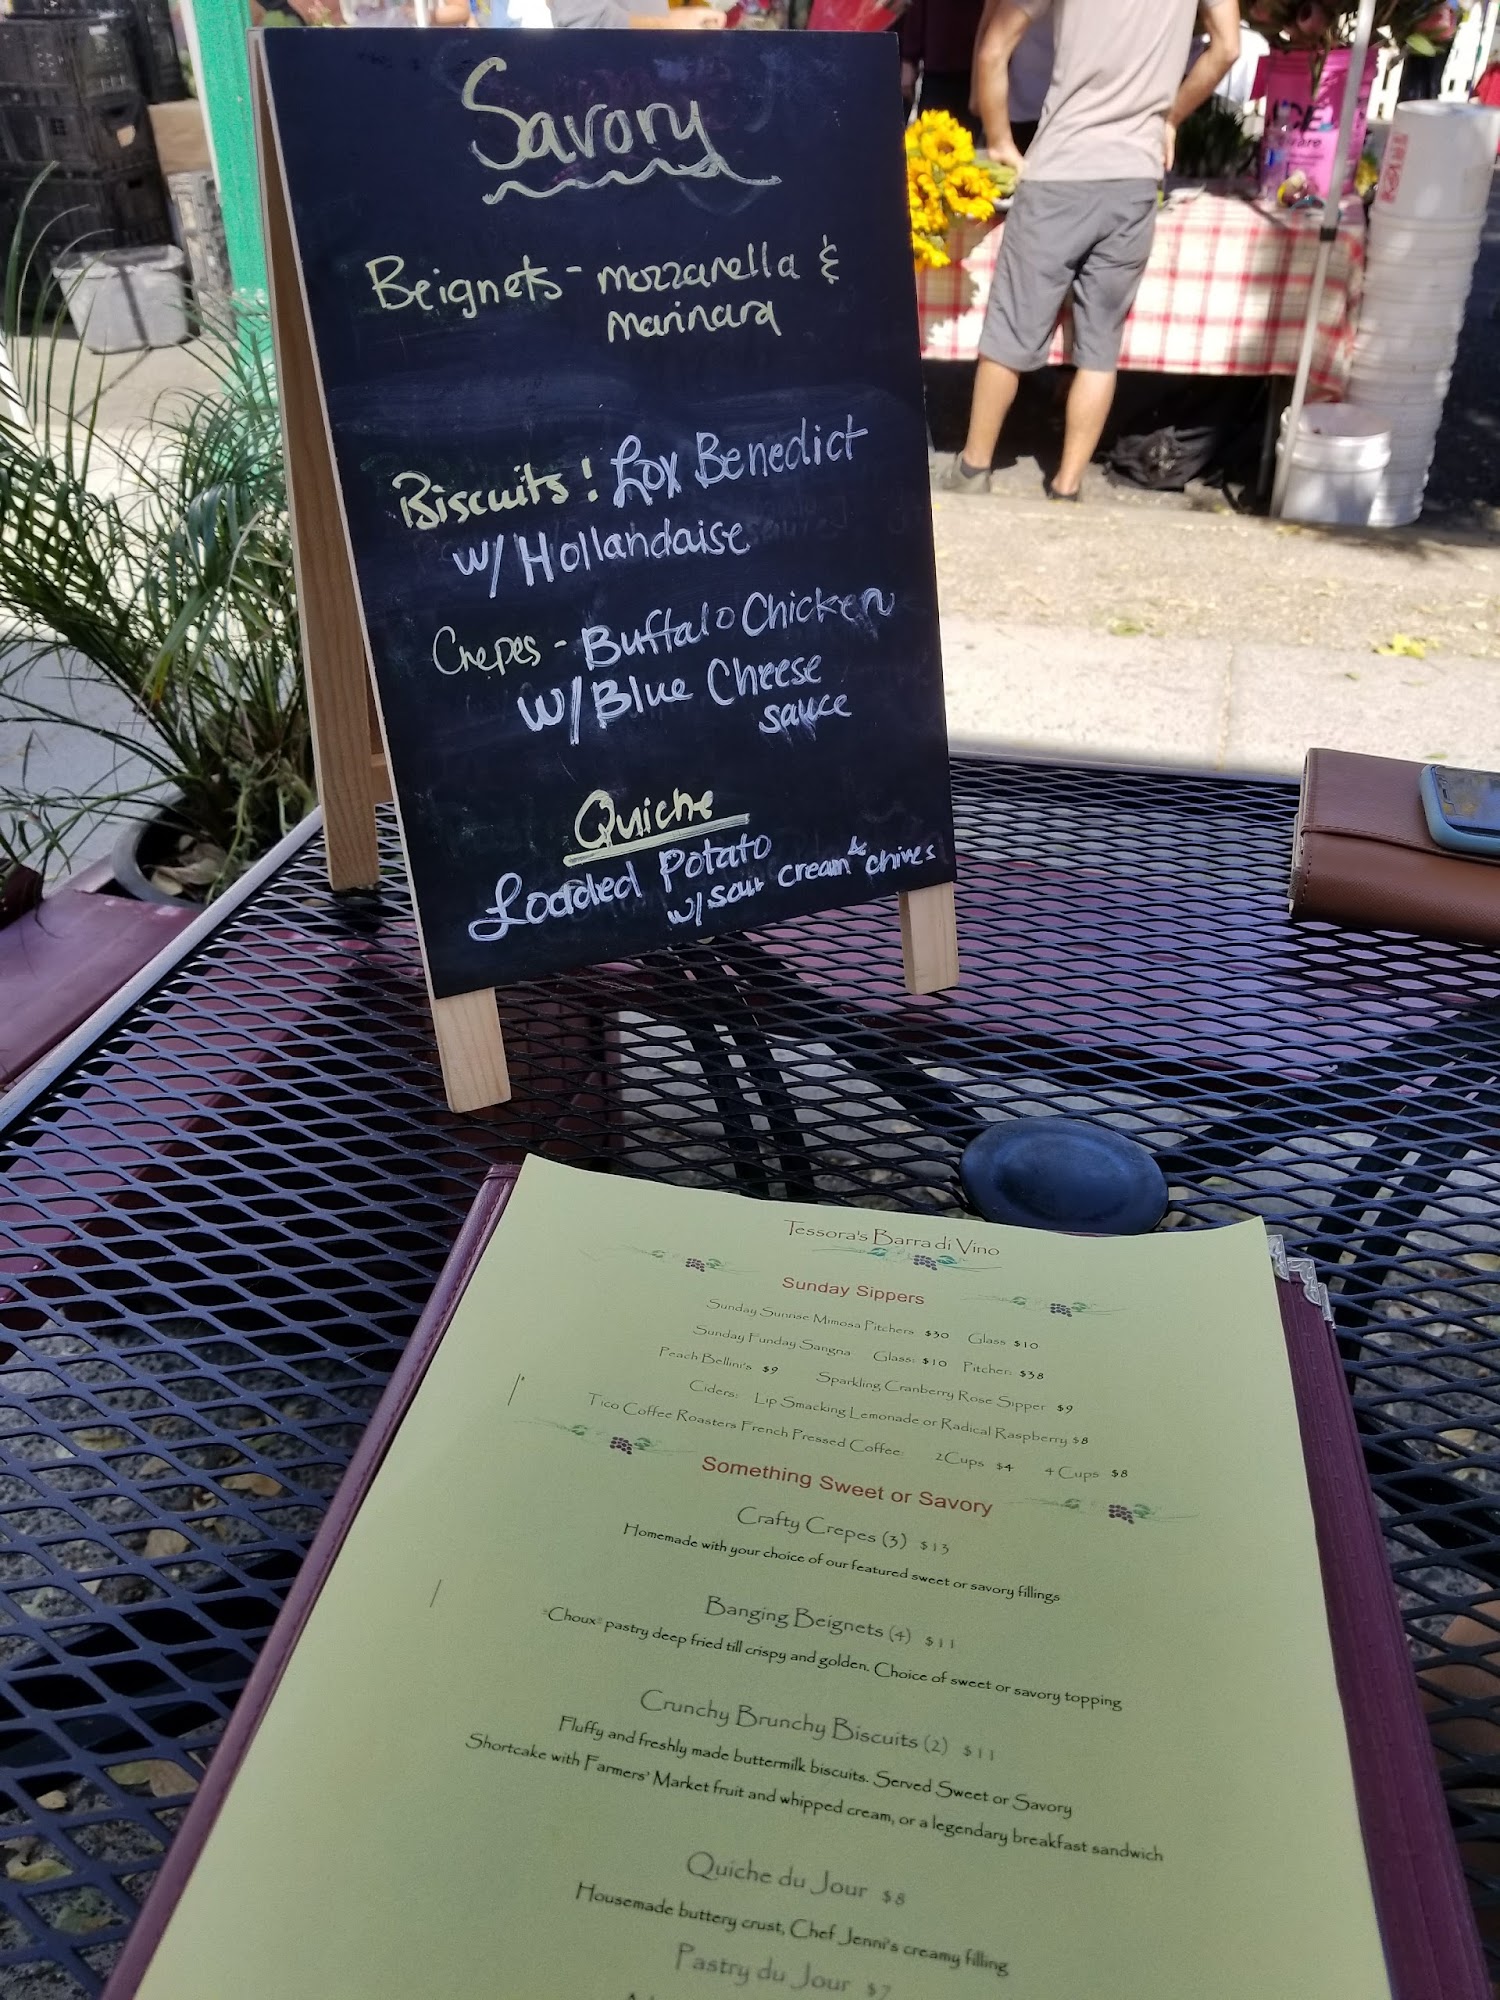 Savory
Beignets - mozzarella &
marinara
Biscuits! Lox Benedict
w/ Hollandaise
Crepes - Buffalo Chicken
w/ Blue Cheese
sauce
Quiche
Loaded Potato
w/ sour cream & chives
Tessora's Barra di Vino
Sunday Sippers
Sunday Sunrise Mimosa Pitchers $30 Glass $10
Sunday Funday Sangria Glass: $10 Pitcher: $38
Peach Bellini's $9 Sparkling Cranberry Rose Sipper $9
Ciders: Lip Smacking Lemonade or Radical Raspberry $8
Tico Coffee Roasters French Pressed Coffee: 2 Cups $4 4 Cups $8
Something Sweet or Savory
Crafty Crepes (3) $13
Homemade with your choice of our featured sweet or savory fillings
Banging Beignets (4) $11
"Choux" pastry deep fried till crispy and golden. Choice of sweet or savory topping
Crunchy Brunchy Biscuits (2) $11
Fluffy and freshly made buttermilk biscuits. Served Sweet or Savory
Shortcake with Farmers' Market fruit and whipped cream, or a legendary breakfast sandwich
Quiche du Jour $8
Housemade buttery crust, Chef Jenni's creamy filling
Pastry du Jour $7